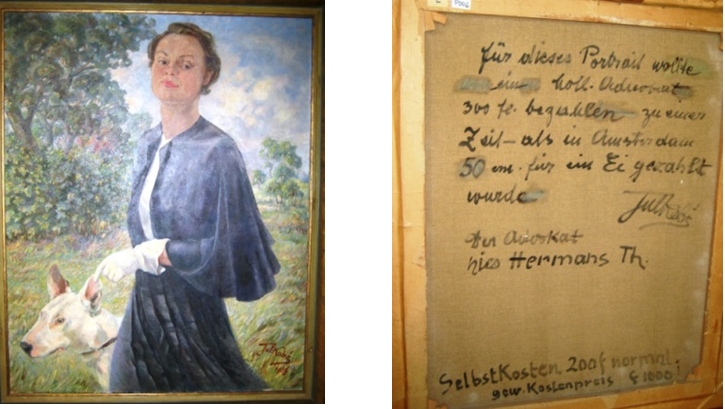 P006
für dieses Portrait wollte
ein holl. Advocat
300 fl. bezahlen zu einer
Zeit als in Amsterdam
50 cm. für ein Ei gezahlt
wurde
Der Advokat
hies Hermans Th.
SelbstKosten 200 f normal.
gew. Kostenpreis f 1000!